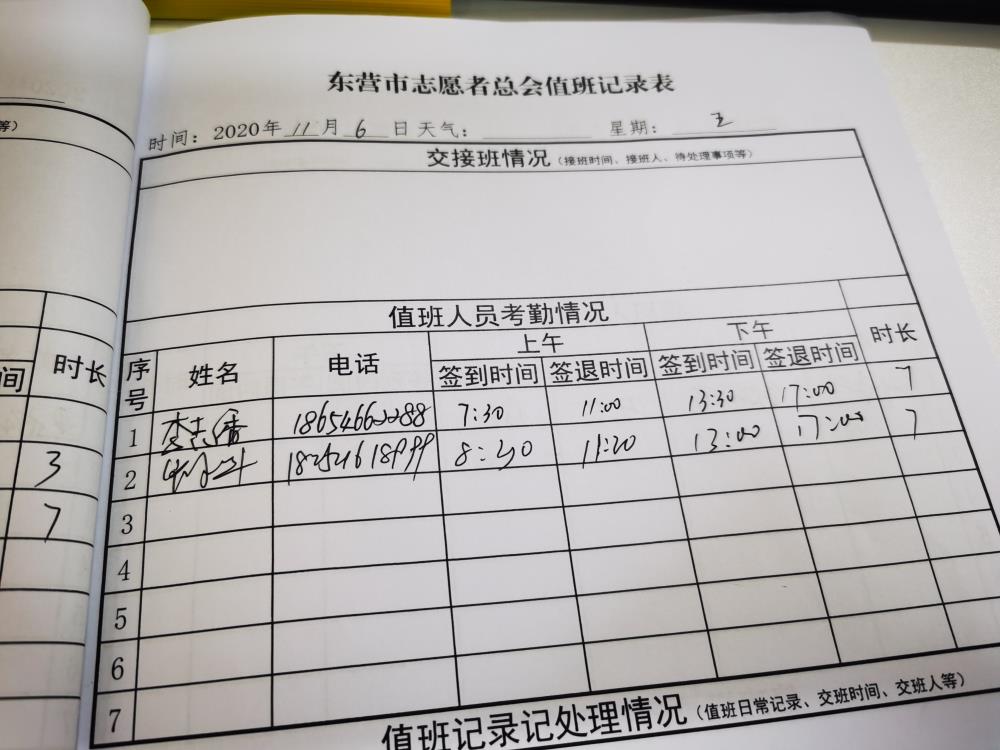 东营市志愿者总会值班记录表
时间：2020年 11 月 6 日 天气： 星期： 五
交接班情况（接班时间、接班人、待处理事项等）
值班人员考勤情况
上午 下午
序号 姓名 电话 签到时间 签退时间 签到时间 签退时间 时长
1 7:30 11:00 13:30 17:00 7
2 13:00 17:00 7
3
4
5
6
7
值班记录记处理情况（值班日常记录、交班时间、交班人等）
等）
间 时长
3
7